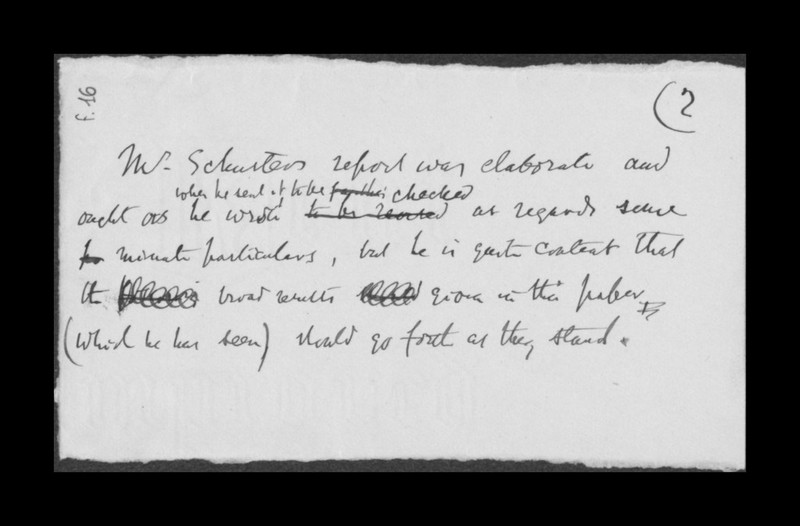 f. 16
(2
Mr. Schusters report was elaborate and
when he sent it to be further checked
ought as he wrote to be revised as regards some
minute particulars, but he is quite content that
the broad results given in this paper
(which he has seen) should go forth as they stand.